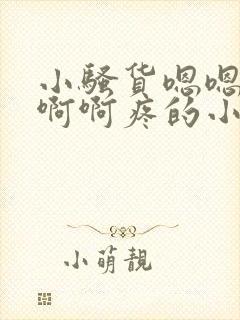 小骚货嗯嗯
啊啊疼的小
小萌靓